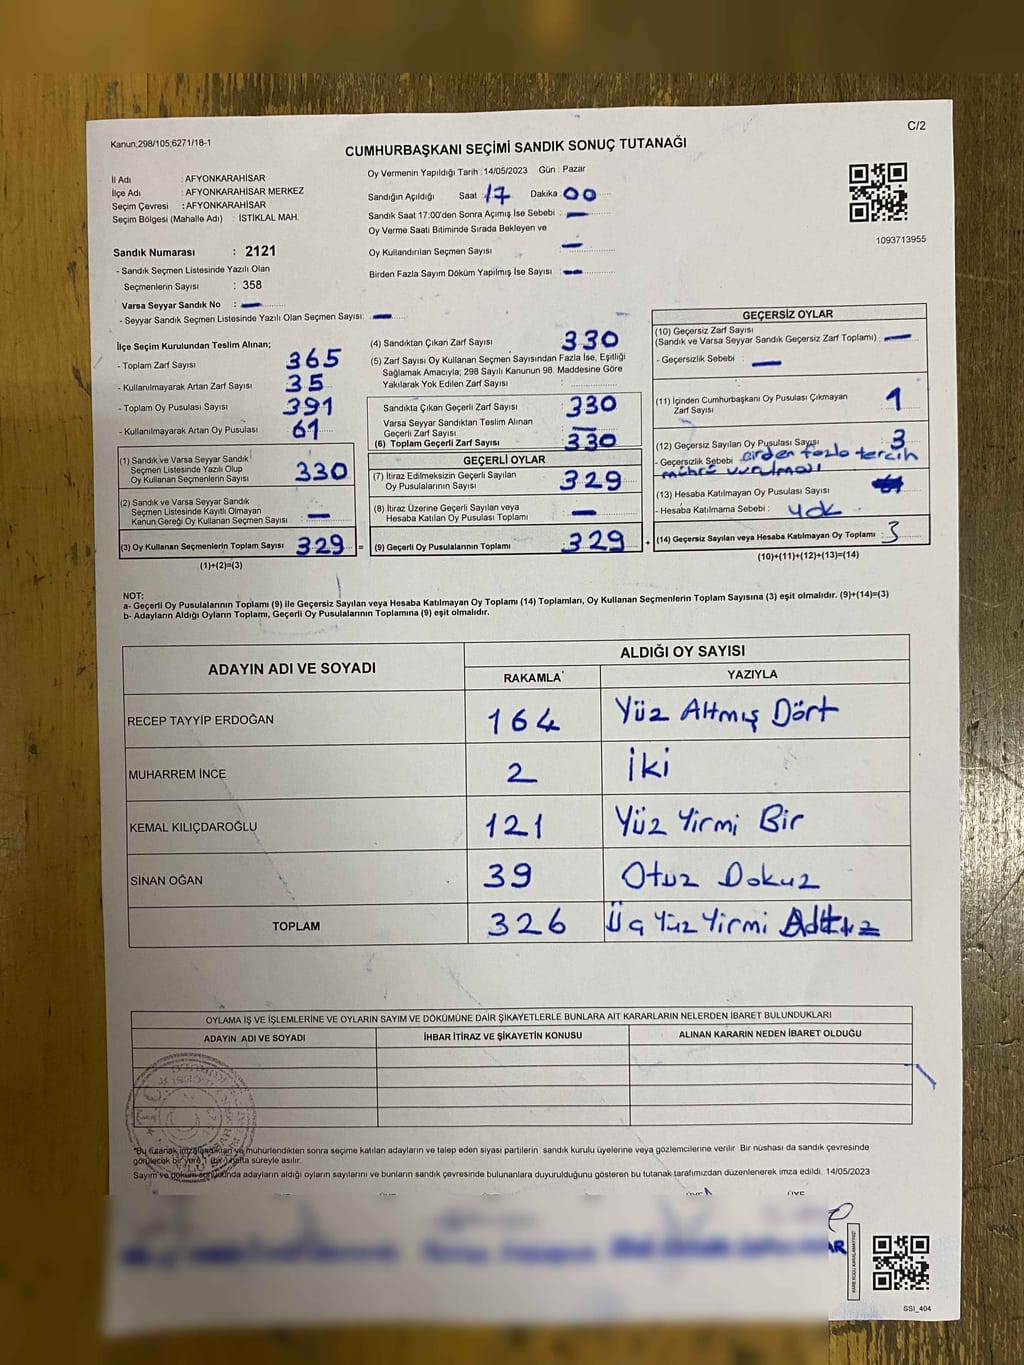 C/2
Kanun;298/105,6271/18-1
CUMHURBAŞKANI SEÇİMİ SANDIK SONUÇ TUTANAĞI
İl Adı : AFYONKARAHİSAR
İlçe Adı : AFYONKARAHİSAR MERKEZ
Seçim Çevresi : AFYONKARAHİSAR
Seçim Bölgesi (Mahalle Adı) : İSTİKLAL MAH.
Sandık Numarası : 2121
- Sandık Seçmen Listesinde Yazılı Olan
Seçmenlerin Sayısı : 358
Varsa Seyyar Sandık No : —
- Seyyar Sandık Seçmen Listesinde Yazılı Olan Seçmen Sayısı: —
Oy Vermenin Yapıldığı Tarih : 14/05/2023 Gün : Pazar
Sandığın Açıldığı Saat 17 Dakika 00
Sandık Saat 17:00'den Sonra Açımış İse Sebebi : —
Oy Verme Saati Bitiminde Sırada Bekleyen ve
Oy Kullandırılan Seçmen Sayısı —
Birden Fazla Sayım Döküm Yapılmış İse Sayısı : —
1093713955
İlçe Seçim Kurulundan Teslim Alınan;
- Toplam Zarf Sayısı 365
- Kullanılmayarak Artan Zarf Sayısı 35
- Toplam Oy Pusulası Sayısı 391
- Kullanılmayarak Artan Oy Pusulası 61
(1) Sandık ve Varsa Seyyar Sandık
Seçmen Listesinde Yazılı Olup
Oy Kullanan Seçmenlerin Sayısı 330
(2) Sandık ve Varsa Seyyar Sandık
Seçmen Listesinde Kayıtlı Olmayan
Kanun Gereği Oy Kullanan Seçmen Sayısı —
(3) Oy Kullanan Seçmenlerin Toplam Sayısı 329 =
(1)+(2)=(3)
(4) Sandıktan Çıkan Zarf Sayısı 330
(5) Zarf Sayısı Oy Kullanan Seçmen Sayısından Fazla İse, Eşitliği
Sağlamak Amacıyla; 298 Sayılı Kanunun 98. Maddesine Göre
Yakılarak Yok Edilen Zarf Sayısı :
Sandıkta Çıkan Geçerli Zarf Sayısı 330
Varsa Seyyar Sandıktan Teslim Alınan
Geçerli Zarf Sayısı —
(6) Toplam Geçerli Zarf Sayısı 330
GEÇERLİ OYLAR
(7) İtiraz Edilmeksizin Geçerli Sayılan
Oy Pusulalarının Sayısı 329
(8) İtiraz Üzerine Geçerli Sayılan veya
Hesaba Katılan Oy Pusulası Toplamı —
(9) Geçerli Oy Pusulalarının Toplamı 329 +
GEÇERSİZ OYLAR
(10) Geçersiz Zarf Sayısı
(Sandık ve Varsa Seyyar Sandık Geçersiz Zarf Toplamı) —
- Geçersizlik Sebebi : —
(11) İçinden Cumhurbaşkanı Oy Pusulası Çıkmayan
Zarf Sayısı 1
(12) Geçersiz Sayılan Oy Pusulası Sayısı 3
- Geçersizlik Sebebi Birden fazla tercih
mührü vurulması
(13) Hesaba Katılmayan Oy Pusulası Sayısı
- Hesaba Katılmama Sebebi : yok
(14) Geçersiz Sayılan veya Hesaba Katılmayan Oy Toplamı 3
(10)+(11)+(12)+(13)=(14)
NOT:
a- Geçerli Oy Pusulalarının Toplamı (9) ile Geçersiz Sayılan veya Hesaba Katılmayan Oy Toplamı (14) Toplamları, Oy Kullanan Seçmenlerin Toplam Sayısına (3) eşit olmalıdır. (9)+(14)=(3)
b- Adayların Aldığı Oyların Toplamı, Geçerli Oy Pusulalarının Toplamına (9) eşit olmalıdır.
ADAYIN ADI VE SOYADI
ALDIĞI OY SAYISI
RAKAMLA YAZIYLA
RECEP TAYYİP ERDOĞAN 164 Yüz Altmış Dört
MUHARREM İNCE 2 İki
KEMAL KILIÇDAROĞLU 121 Yüz Yirmi Bir
SİNAN OĞAN 39 Otuz Dokuz
TOPLAM 326 Üç Yüz Yirmi
OYLAMA İŞ VE İŞLEMLERİNE VE OYLARIN SAYIM VE DÖKÜMÜNE DAİR ŞİKAYETLERLE BUNLARA AİT KARARLARIN NELERDEN İBARET BULUNDUKLARI
ADAYIN ADI VE SOYADI İHBAR İTİRAZ VE ŞİKAYETİN KONUSU ALINAN KARARIN NEDEN İBARET OLDUĞU
*Bu tutanak imzalandıktan ve mühürlendikten sonra seçime katılan adayların ve talep eden siyasi partilerin sandık kurulu üyelerine veya gözlemcilerine verilir. Bir nüshası da sandık çevresinde
görülecek bir yere 1 (bir) hafta süreyle asılır.
Sayım ve döküm sonucunda adayların aldığı oyların sayılarını ve bunların sandık çevresinde bulunanlara duyurulduğunu gösteren bu tutanak tarafımızdan düzenlenerek imza edildi. 14/05/2023
SSI_404